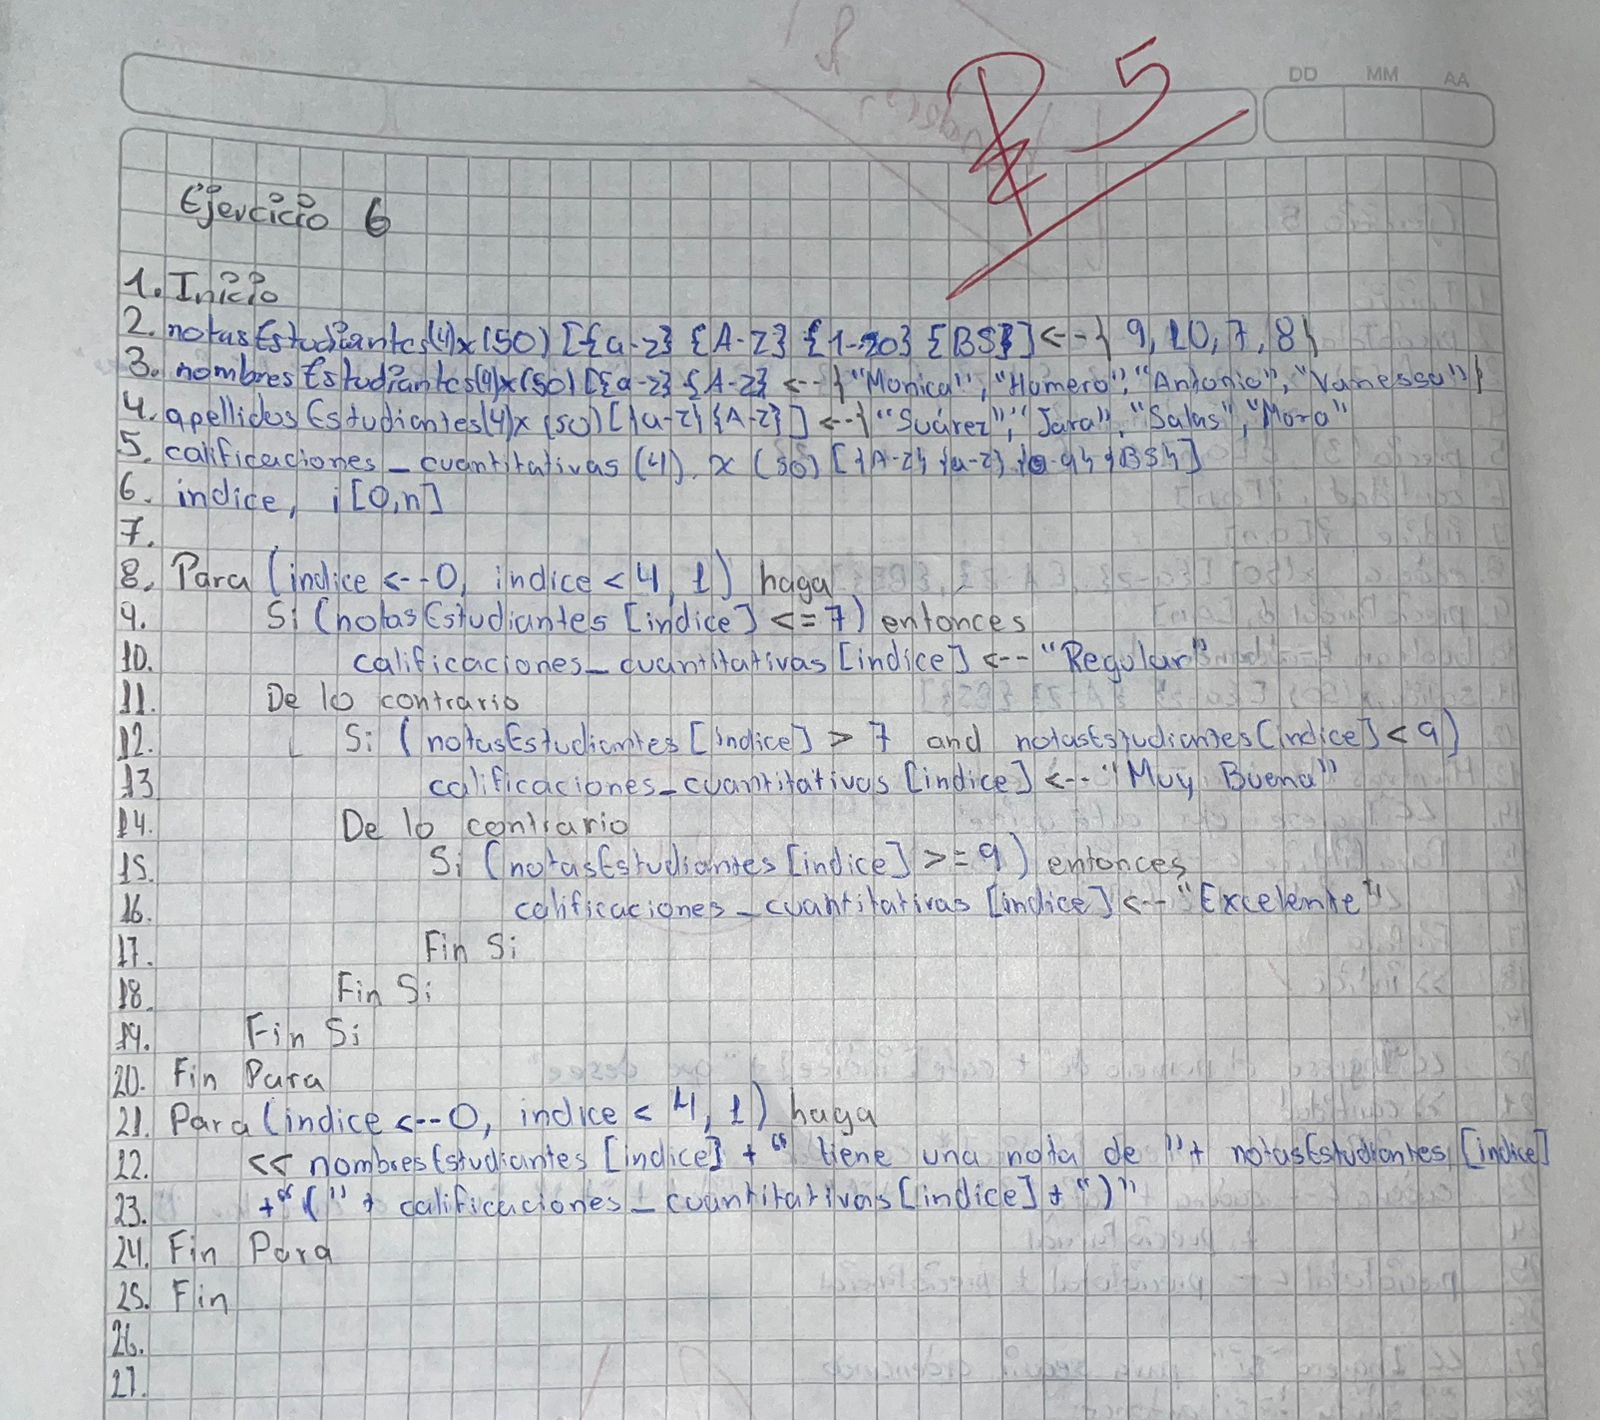 5
DD MM AA
Ejercicio 6
1. Inicio
2. notasEstudiantes(4)x(50) [{a-z} {A-Z} {1-20} {BS}] <-- { 9, 10, 7, 8}
3. nombresEstudiantes(4)x(50) [{a-z} {A-Z} <-- {"Monica", "Homero", "Antonio", "Vanessa"}
4. apellidosEstudiantes(4)x (50) [{a-z} {A-Z}] <-- { "Suárez", "Jara", "Salas", "Mora"
5. calificaciones_cuantitativas (4) x (50) [{A-Z} {a-z} {0-9} {BS}]
6. indice, i [0,n]
7.
8. Para (indice <--0, indice < 4, 1) haga
9. Si (notasEstudiantes [indice] <= 7) entonces
10. calificaciones_cuantitativas [indice] <-- "Regular"
11. De lo contrario
12. Si (notasEstudiantes [indice] > 7 and notasEstudiantes [indice] < 9)
13 calificaciones_cuantitativas [indice] <-- "Muy Buena"
14. De lo contrario
15. Si (notasEstudiantes [indice] >= 9) entonces
16. calificaciones_cuantitativas [indice] <-- "Excelente"
17. Fin Si
18. Fin Si
19. Fin Si
20. Fin Para
21. Para (indice <--0, indice < 4, 1) haga
22. << nombresEstudiantes [indice] + " tiene una nota de " + notasEstudiantes [indice]
23. + "(" + calificaciones_cuantitativas [indice] + ")"
24. Fin Para
25. Fin
26.
27.